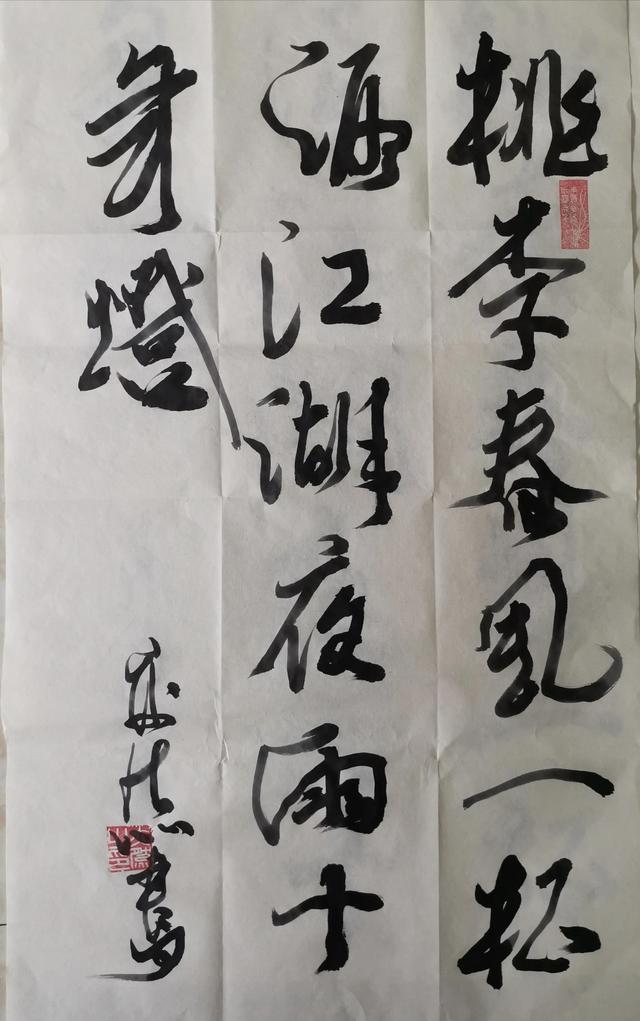 桃李春風一杯
酒江湖夜雨十
年燈